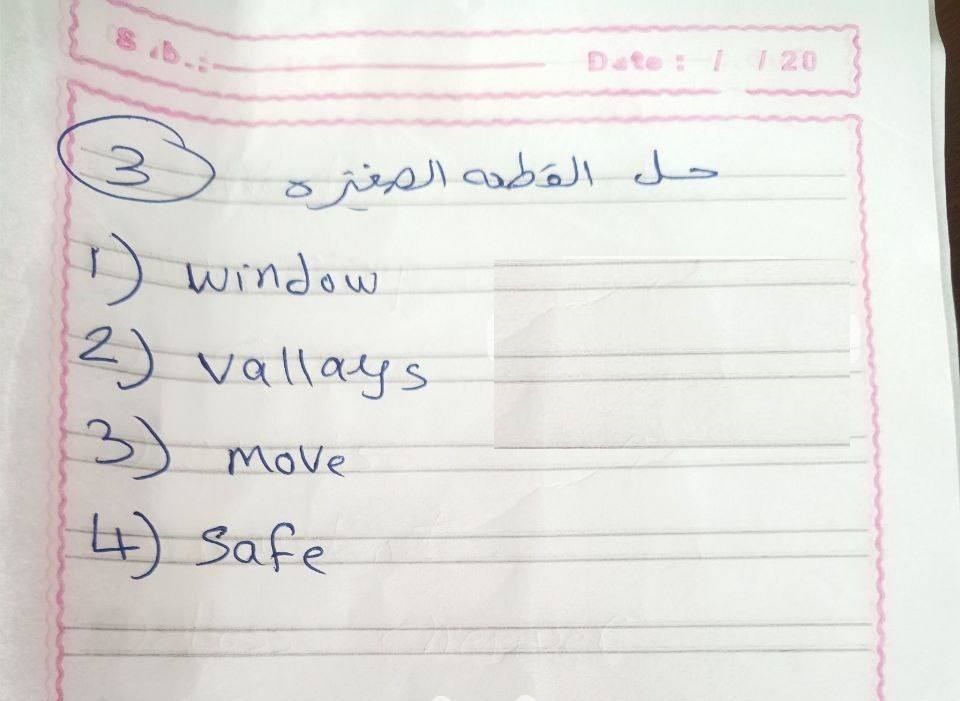 S.b.: Date : / / 20
3 حل القطعه الصغيره
1) window
2) vallays
3) move
4) safe